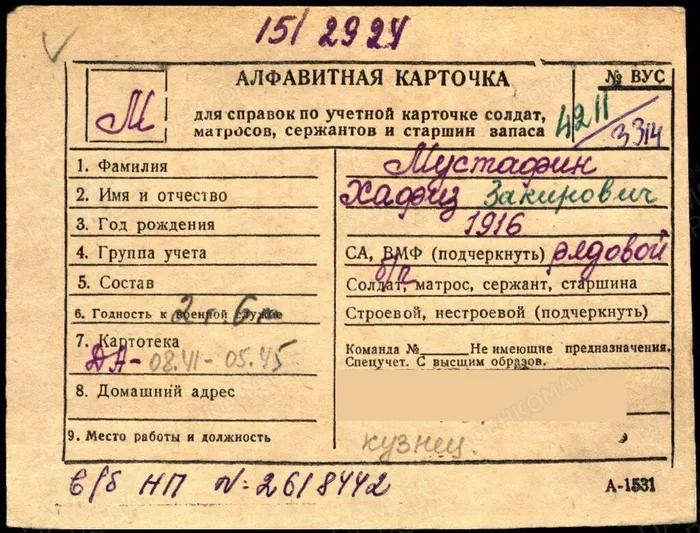 15/2924
М
АЛФАВИТНАЯ КАРТОЧКА
№ ВУС
для справок по учетной карточке солдат,
матросов, сержантов и старшин запаса
4211
3314
1. Фамилия
Мустафин
2. Имя и отчество
Хафиз Закирович
3. Год рождения
1916
4. Группа учета
СА, ВМФ (подчеркнуть) рядовой
5. Состав
Солдат, матрос, сержант, старшина
6. Годность к военной службе
Строевой, нестроевой (подчеркнуть)
7. Картотека
ДА- 08.41-05.45
Команда № Не имеющие предназначения.
Спецучет. С высщим образов.
8. Домашний адрес
9. Место работы и должность
кузнец.
в/б НП №: 26/8442
А-1531